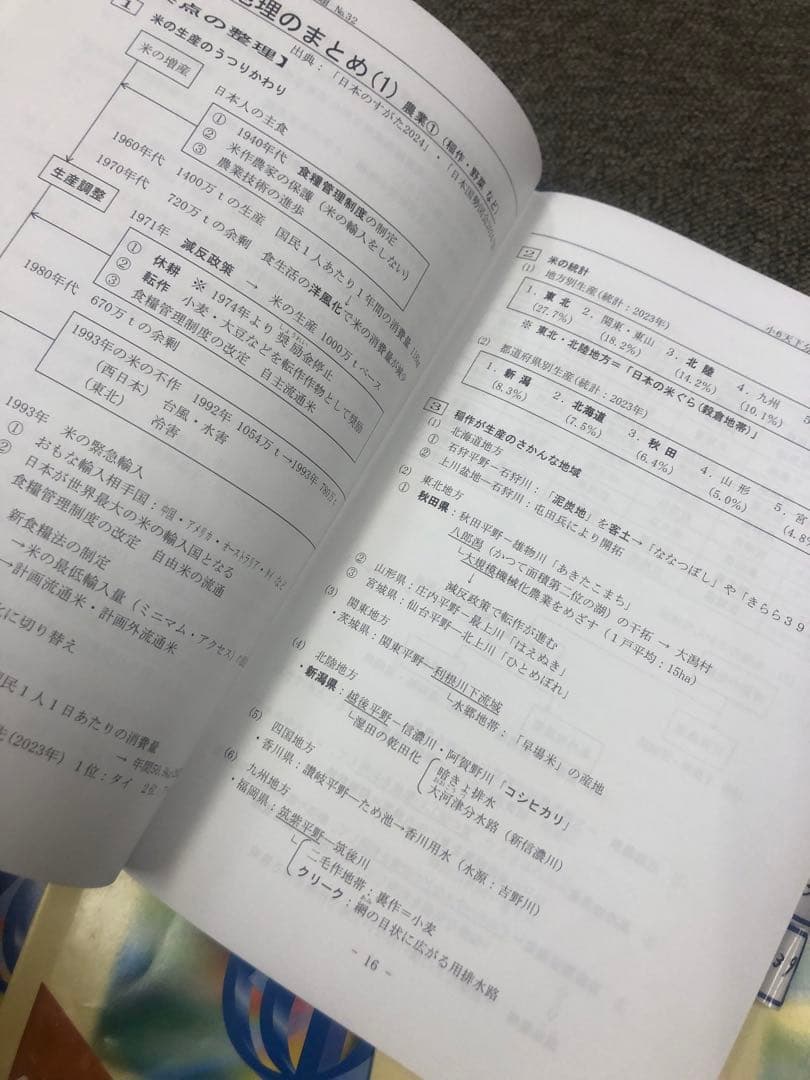 №32
地理のまとめ(1) 農業①(稲作・野菜 など)
点の整理】
出典:「日本のすがた2024」・「日本国勢図会
1 米の生産のうつりかわり
米の増産
日本人の主食
① 1940年代 食糧管理制度の制定
② 米作農家の保護(米の輸入をしない)
③ 農業技術の進歩
1960年代 1400万tの生産 国民1人あたり1年間の消費量
1970年代 720万tの余剰 食生活の洋風化で米の消費量が減少
生産調整
1971年 減反政策 → 米の生産 1000万tベース
① 休耕 ※1974年より奨励金停止
しょうれい
② 転作 小麦・大豆などを転作作物として奨励
③ 食糧管理制度の改定 自主流通米
1980年代 670万tの余剰
1993年の米の不作 1992年 1054万t→1993年 780万t
(西日本) 台風・水害
(東北) 冷害
1993年 米の緊急輸入
① おもな輸入相手国:中国・アメリカ・オーストラリア・タイ など
② 日本が世界最大の米の輸入国となる
食糧管理制度の改定 自由米の流通
新食糧法の制定
→米の最低輸入量(ミニマム・アクセス)
→計画流通米・計画外流通米
に切り替え
民1人1日あたりの消費量
→ 年間50.
(2023年) 1位:タイ
小6天下
2 米の統計
(1) 地方別生産(統計:2023年)
1.東北 2.関東・東山 3.北陸 4.九州 5
(27.7%) (18.2%) (14.2%) (10.1%)
※ 東北・北陸地方=「日本の米ぐら(穀倉地帯)」
(2) 都道府県別生産(統計:2023年)
1.新潟 2.北海道 3.秋田 4.山形 5.宮
(8.3%) (7.5%) (6.4%) (5.0%) (4.8%
3 稲作が生産のさかんな地域
(1) 北海道地方
① 石狩平野―石狩川:「泥炭地」を客土→「ななつぼし」や「きらら39
② 上川盆地―石狩川:屯田兵により開拓
(2) 東北地方
① 秋田県:秋田平野―雄物川「あきたこまち」
八郎潟(かつて面積第二位の湖)の干拓 → 大潟村
└大規模機械化農業をめざす(1戸平均:15ha)
↓
減反政策で転作が進む
② 山形県:庄内平野―最上川「はえぬき」
③ 宮城県:仙台平野―北上川「ひとめぼれ」
(3) 関東地方
・茨城県:関東平野―利根川下流域
└水郷地帯:「早場米」の産地
(4) 北陸地方
・新潟県:越後平野―信濃川・阿賀野川「コシヒカリ」
└湿田の乾田化 暗きょ排水
大河津分水路(新信濃川)
(5) 四国地方
・香川県:讃岐平野―ため池→香川用水(水源:吉野川)
(6) 九州地方
・福岡県:筑紫平野―筑後川
二毛作地帯:裏作=小麦
クリーク:網の目状に広がる用排水路
- 16 -